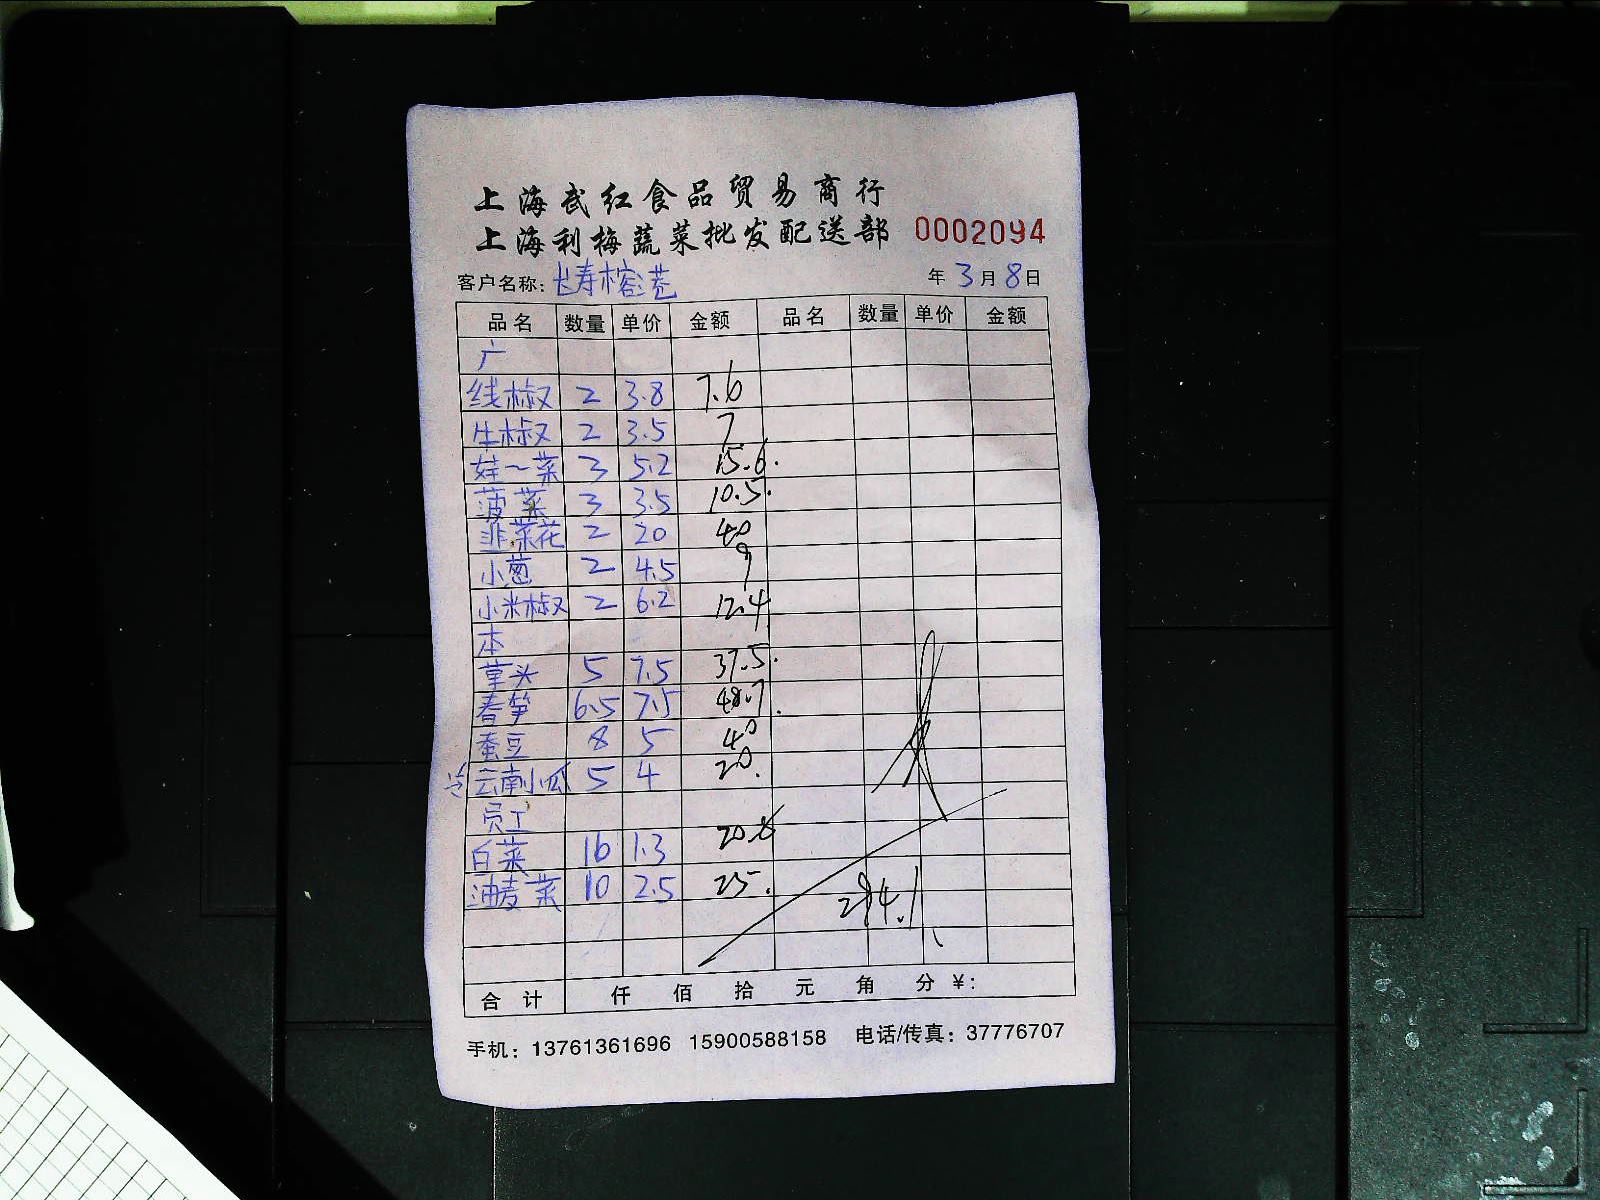 上海武红食品贸易商行
上海利梅蔬菜批发配送部 0002094
客户名称：长寿榕港 年 3 月 8 日
品名 数量 单价 金额 品名 数量 单价 金额
广
线椒 2 3.8 7.6
牛椒 2 3.5 7
娃~菜 3 5.2 15.6.
菠菜 3 3.5 10.5.
韭菜花 2 20 40
小葱 2 4.5 9
小米椒 2 6.2 12.4
本
草头 5 7.5 37.5.
春笋 6.5 7.5 48.7.
蚕豆 8 5 40
云南小瓜 5 4 20.
员工
白菜 16 1.3 20.8
油麦菜 10 2.5 25.
294.1
合计 仟 佰 拾 元 角 分 ¥：
手机：13761361696 15900588158 电话/传真：37776707